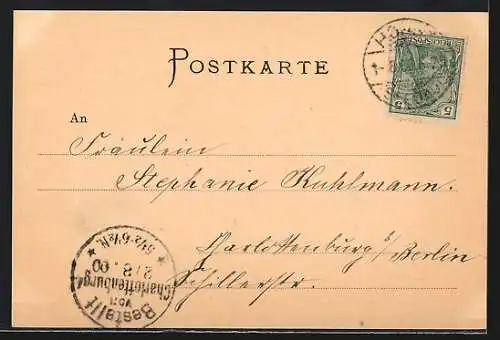 POSTKARTE
An
Fräulein
Stephanie Kuhlmann.
Charlottenburg b/ Berlin
Schillerstr.
REICHSPOST
5 5
Bestellt
von
Charlottenburg
2/8.00
* 5½-6½N. *